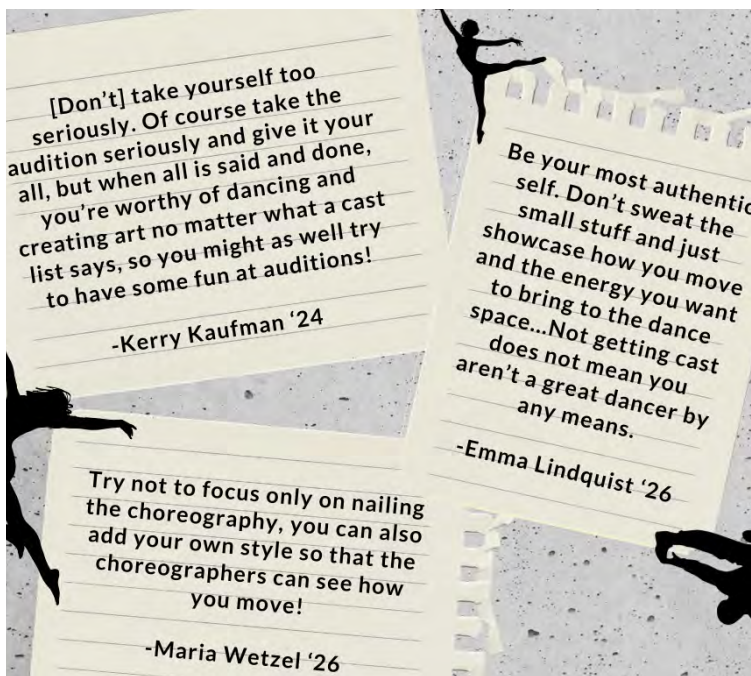 [Don’t] take yourself too
seriously. Of course take the
audition seriously and give it your
all, but when all is said and done,
you’re worthy of dancing and
creating art no matter what a cast
list says, so you might as well try
to have some fun at auditions!
-Kerry Kaufman ‘24
Be your most authentic
self. Don’t sweat the
small stuff and just
showcase how you move
and the energy you want
to bring to the dance
space...Not getting cast
does not mean you
aren’t a great dancer by
any means.
-Emma Lindquist ‘26
Try not to focus only on nailing
the choreography, you can also
add your own style so that the
choreographers can see how
you move!
-Maria Wetzel ‘26